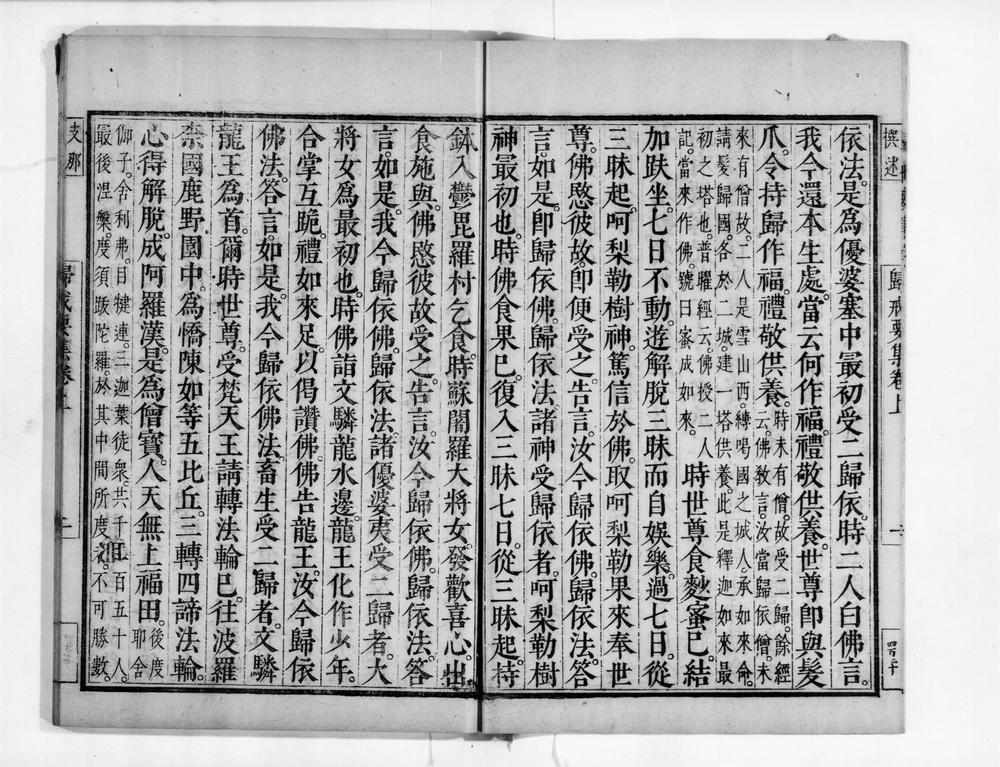 撰述
歸戒要集卷上
依法是爲優婆塞中最初受二歸依時二人白佛言
我今還本生處當云何作福禮敬供養世尊卽與髮
爪令持歸作福禮敬供養時未有僧故受二歸餘經
云佛教言汝當歸依僧未
來有僧故二人是雪山西縛喝國之城人承如來命
請髮歸國各於二城建一塔供養此是釋迦如來最
初之塔也普曜經云佛授二人
記當來作佛號曰蜜成如來時世尊食麨蜜已結
加趺坐七日不動遊解脫三昧而自娛樂過七日從
三昧起呵梨勒樹神篤信於佛取呵梨勒果來奉世
尊佛愍彼故卽便受之告言汝今歸依佛歸依法答
言如是卽歸依佛歸依法諸神受歸依者呵梨勒樹
神最初也時佛食果已復入三昧七日從三昧起持
鉢入鬱毘羅村乞食時蘇闍羅大將女發歡喜心出
食施與佛愍彼故受之告言汝今歸依佛歸依法答
言如是我今歸依佛歸依法諸優婆夷受二歸者大
將女爲最初也時佛詣文驎龍水邊龍王化作少年
合掌互跪禮如來足以偈讚佛佛告龍王汝今歸依
佛法答言如是我今歸依佛法畜生受二歸者文驎
龍王爲首爾時世尊受梵天王請轉法輪已往波羅
柰國鹿野園中爲憍陳如等五比丘三轉四諦法輪
心得解脫成阿羅漢是爲僧寶人天無上福田後度
耶舍
伽子舍利弗目犍連三迦葉徒衆共千二百五十人
最後涅槃度須跋陀羅於其中間所度者不可勝數
支那